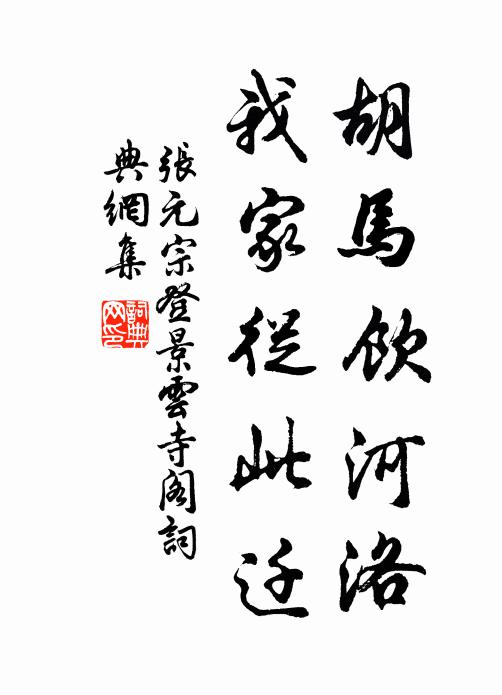 胡馬飲河洛
我家從此迁
張元宗登景雲寺阁詞
典網集
詞典網印